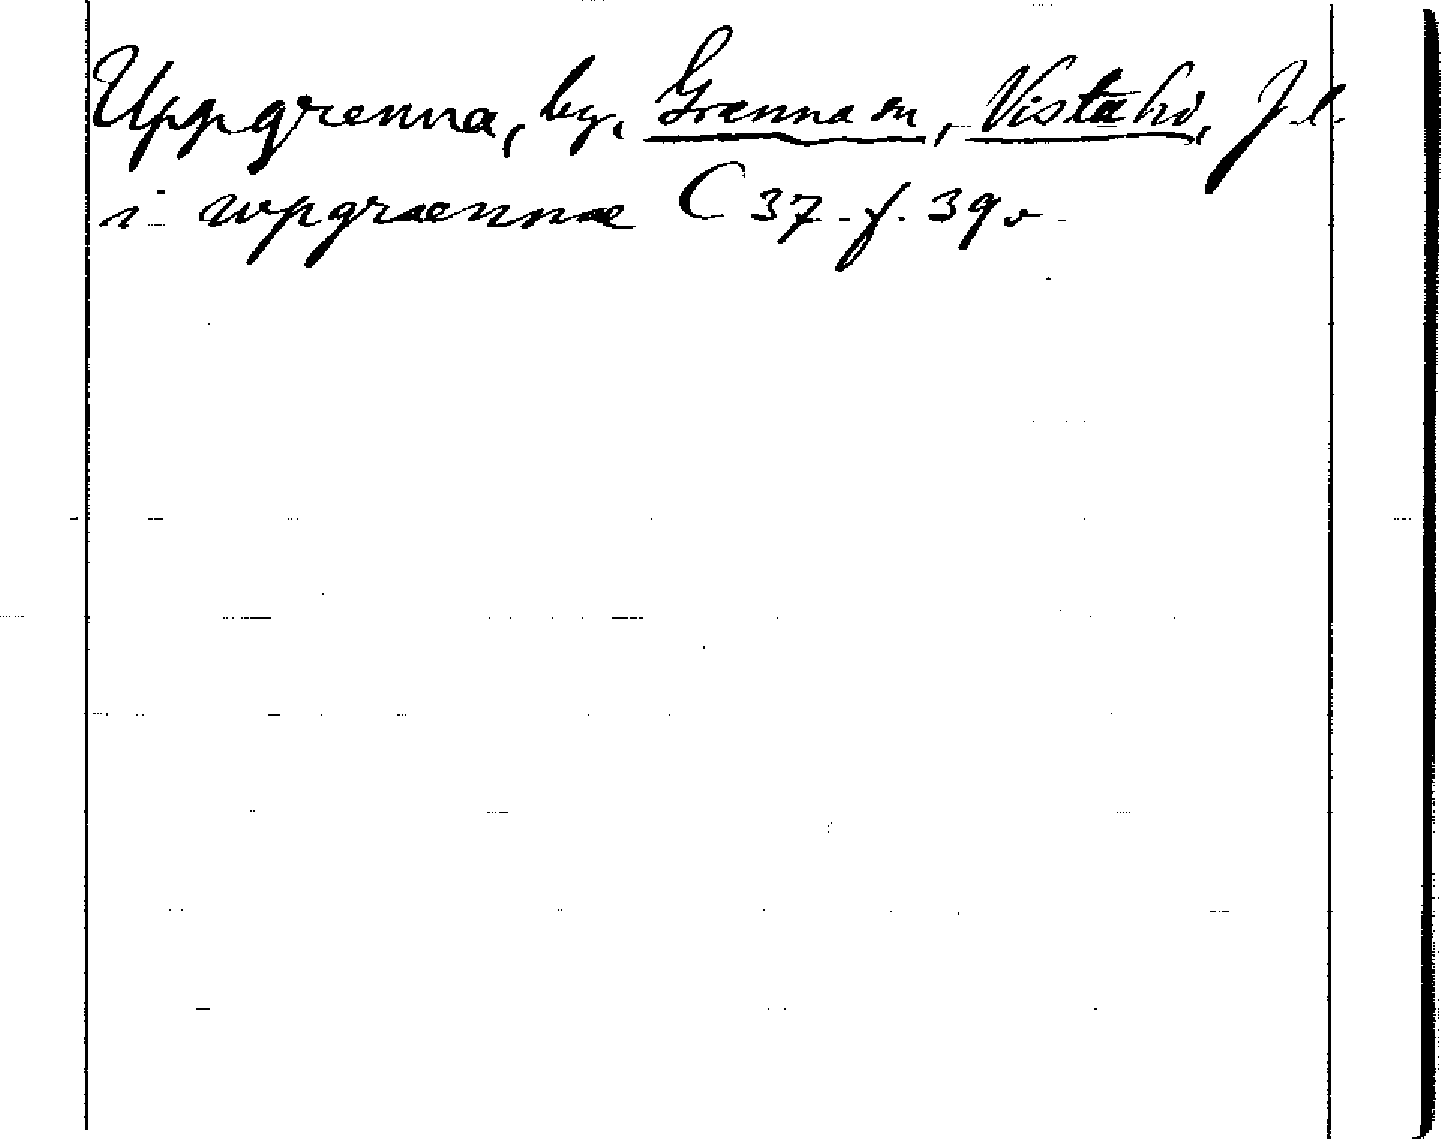 Uppgrenna, by, Grenna sn, Vista hd, J.l.
i wpgraennae C 37. f. 39 v.